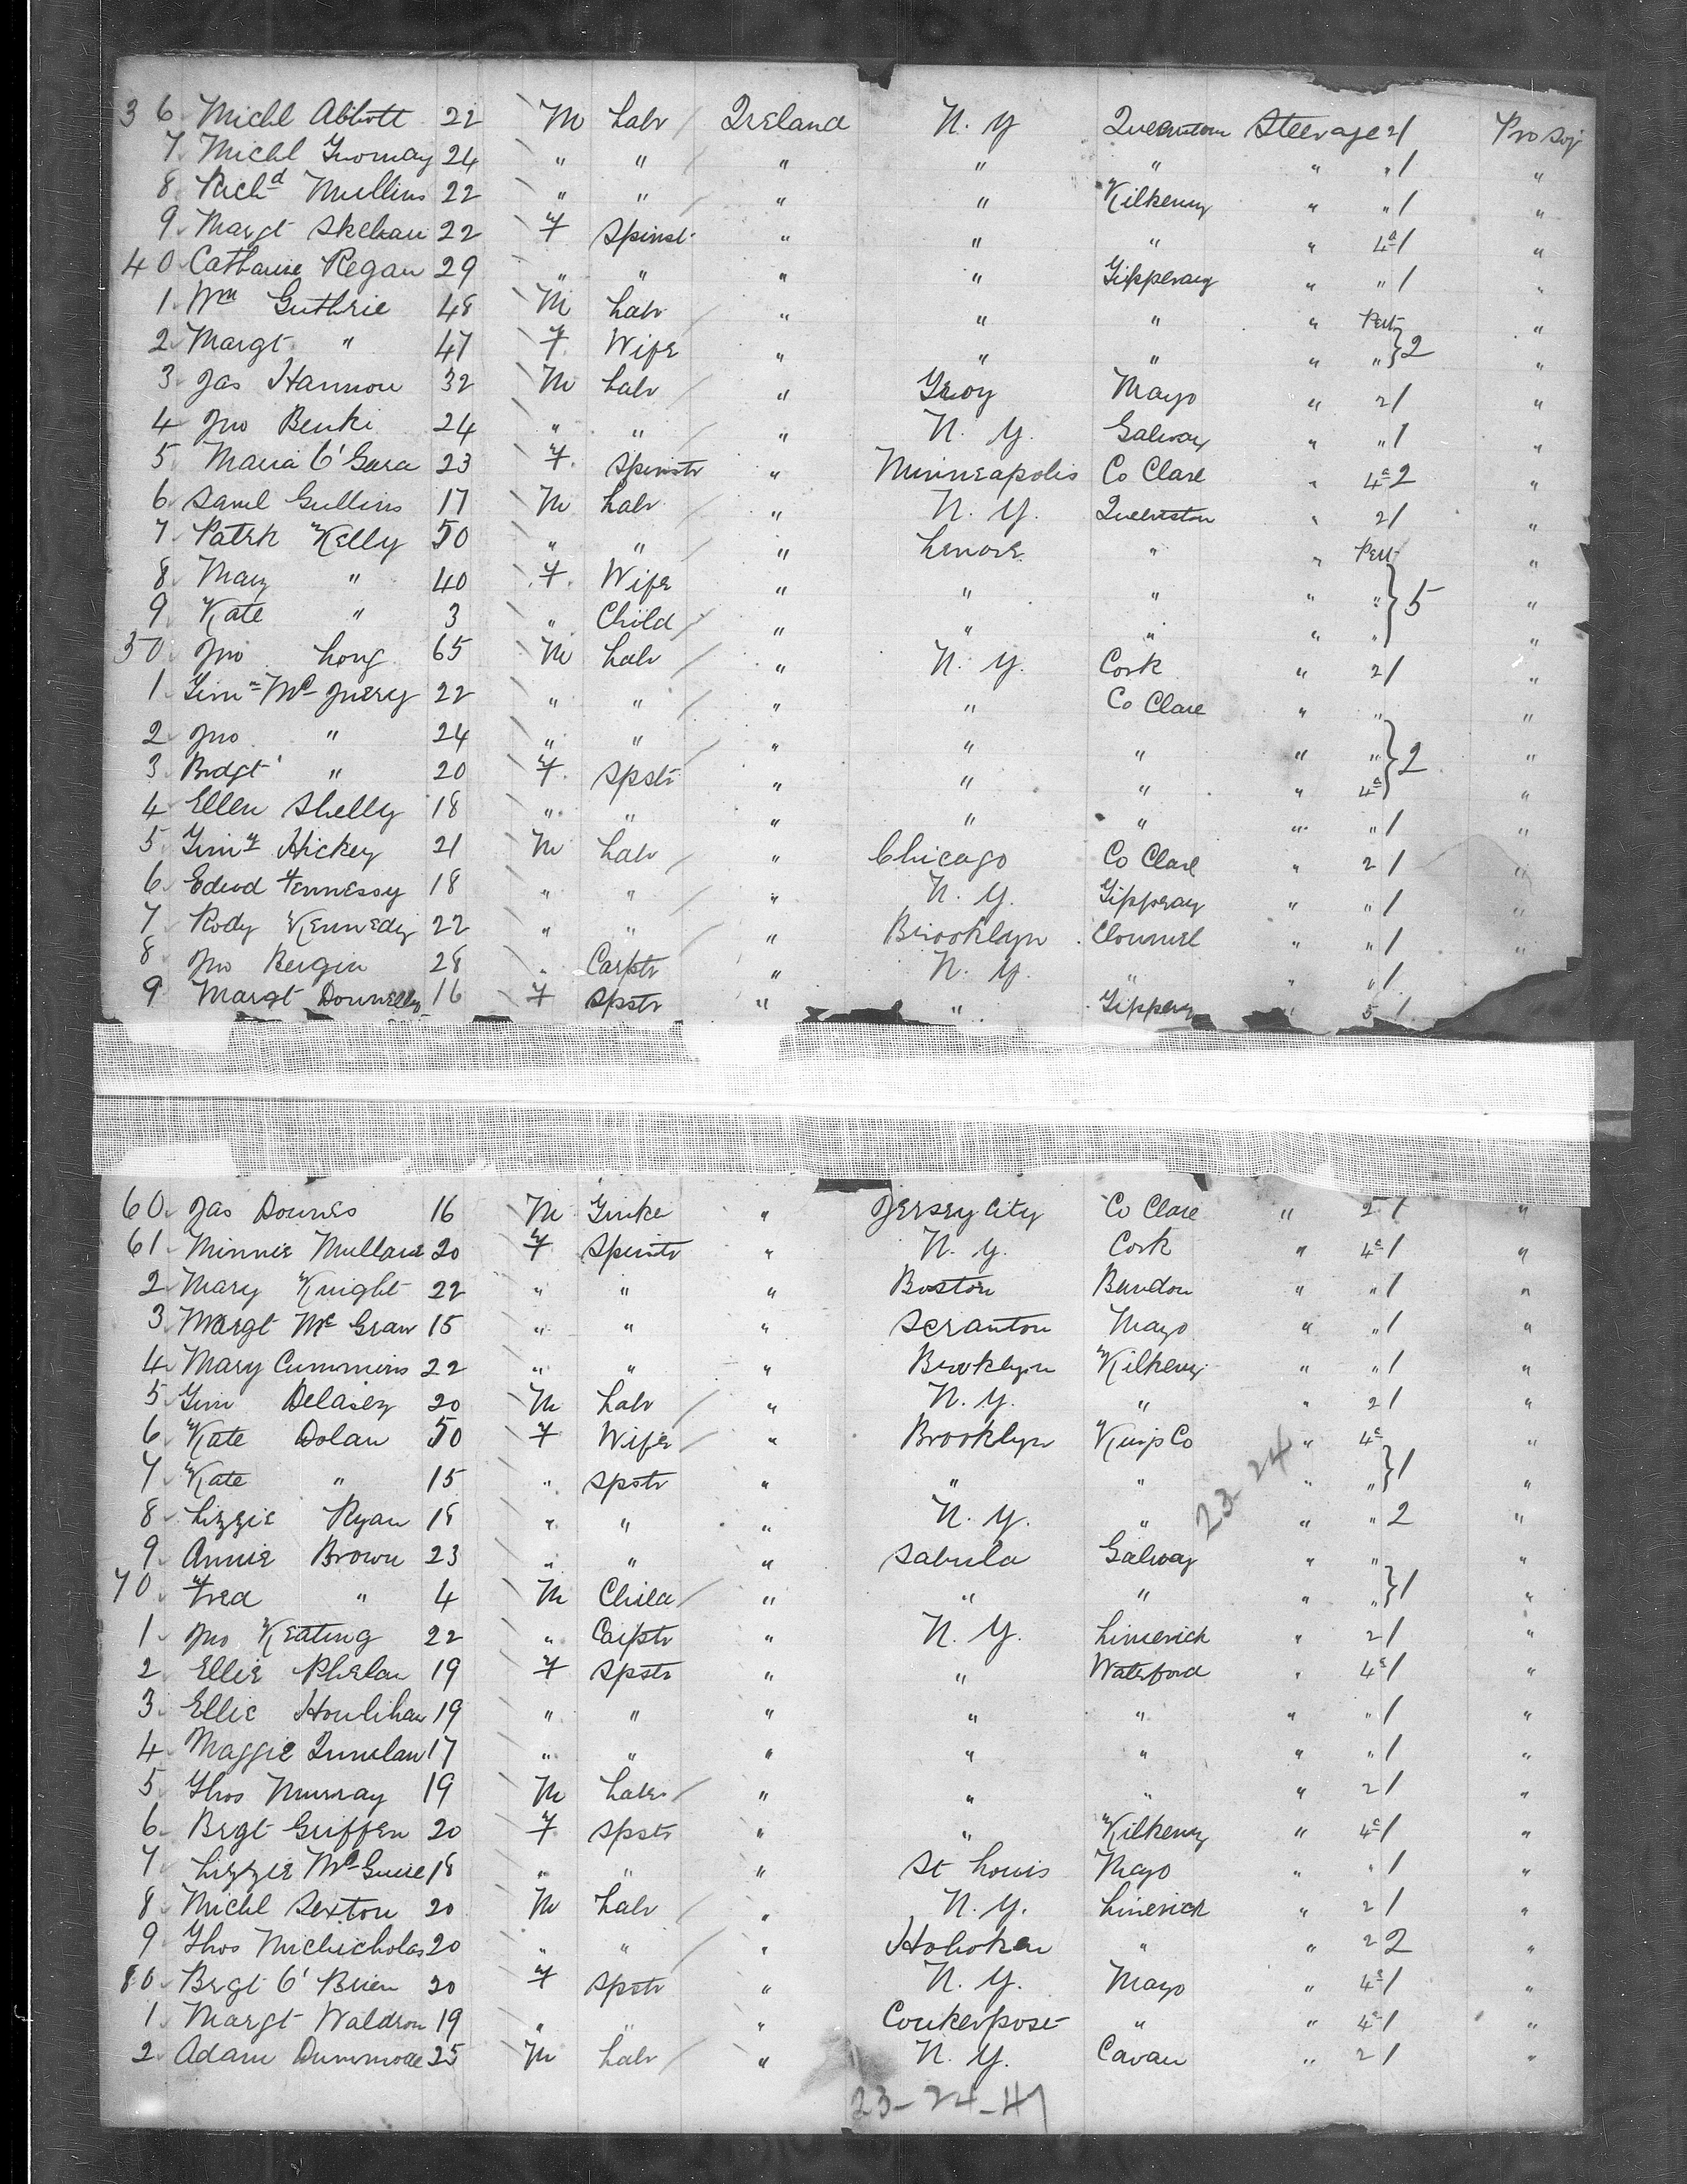 36 Michl Abbott 22 M Labr Ireland N. Y Queenstown Steerage 2/1 Pro Soj
7 Michl 24 " " " " " " "/1 "
8 Richd Mullins 22 " " " " Kilkenny " "/1 "
9 Margt Skehan 22 F Spinst " " " " 4a/1 "
40 Catharine Regan 29 " " " " Tipperary " "/1 "
1 Wm Guthrie 48 M Labr " " " " "
2 Margt " 47 F. Wife " " " " " } 2 "
3 Jas Hannon 32 M Labr " Troy Mayo " 2/1 "
4 Jno 24 " " " N. Y. Galway " "/1 "
5 Maria O'Gara 23 F. Spinstr " Minneapolis Co Clare " 4a 2 "
6 Saml Gullins 17 M Labr " N. Y. Queenston " 2/1 "
7 Patrk Kelly 50 " " " Lenore " " "
8 Mary " 40 F. Wife " " " " " "
9 Kate " 3 " Child " " " " " } 5 "
50 Jno Long 65 M Labr " N. Y. Cork " 2/1 "
1 22 " " " " Co Clare " " "
2 Jno " 24 " " " " " " " "
3 Bridgt " 20 F. Spstr " " " " 4a } 2 "
4 Ellen Shelly 18 " " " " " " "/1 "
5 Timy Hickey 21 M Labr " Chicago Co Clare " 2/1 "
6 Edwd Hennessy 18 " " " N. Y. Tipperay " "/1 "
7 Rody Kennedy 22 " " " Brooklyn Clonmel " "/1 "
8 Jno Bergin 28 " Carptr " N. Y. " " "/1
9 Margt Donnelly 16 F Spstr " " Tippery " 5/1
60 Jas Downes 16 M " Jersey City Co Clare " 2/1 "
61 Minnie Mullane 20 F Spinstr " N. Y. Cork " 4a/1 "
2 Mary Knight 22 " " " Boston Bandon " "/1 "
3 Margt Mc Graw 15 " " " Scranton Mayo " "/1 "
4 Mary Cummins 22 " " " Brooklyn Kilkeny " "/1 "
5 Tim Delaney 20 M Labr " N. Y. " " 2/1 "
6 Kate Dolan 50 F Wife " Brooklyn Kings Co " 4a "
7 Kate " 15 " Spstr " " " " " } 1 "
23-24
8 Lizzie Ryan 18 " " " N. Y. " " " 2 "
9 Annie Brown 23 " " " Sabula Galway " " "
70 Fred " 4 M Child " " " " " } 1 "
1 Jno Keating 22 " Carptr " N. Y. Limerick " 2/1 "
2 Ellie Phelan 19 F Spstr " " Waterford " 4a/1 "
3 Ellie Houlihan 19 " " " " " " "/1 "
4 Maggie Quinlan 17 " " " " " " "/1 "
5 Thos Murray 19 M Labr " " " " 2/1 "
6 Brgt Griffen 20 F Spstr " " Kilkenny " 4a/1 "
7 Lizzie McGuire 18 " " " St Louis Mayo " "/1 "
8 Michl Sexton 20 M Labr " N. Y. Limerick " 2/1 "
9 Thos 20 " " " Hoboken " " 2 2 "
80 Brgt O'Brien 20 F Spstr " N. Y. Mayo " 4a/1 "
1 Margt Waldron 19 " " " " " 4a/1 "
2 Adam 25 M Labr " N. Y. Cavan " 2/1 "
23-24-47